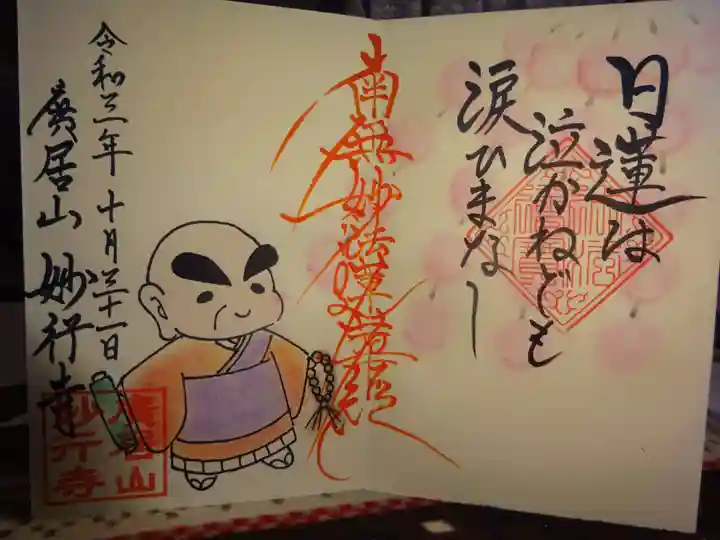 日蓮は
泣かねども
涙ひまなし
南無妙法蓮華経
令和三年 十月三十一日
廣居山 妙行寺
廣居山
妙行寺